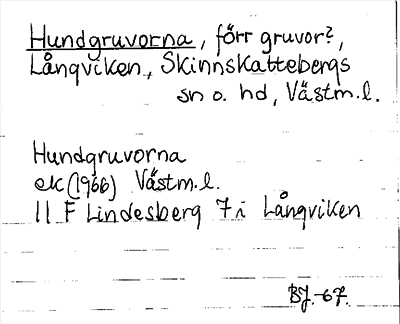 Hundgruvorna, förr gruvor?,
Långviken, Skinnskattebergs
sn o. hd, Västm.l.
Hundgruvorna
ek (1966) Västm.l.
11 F Lindesberg 7 i Långviken
BJ.-67.